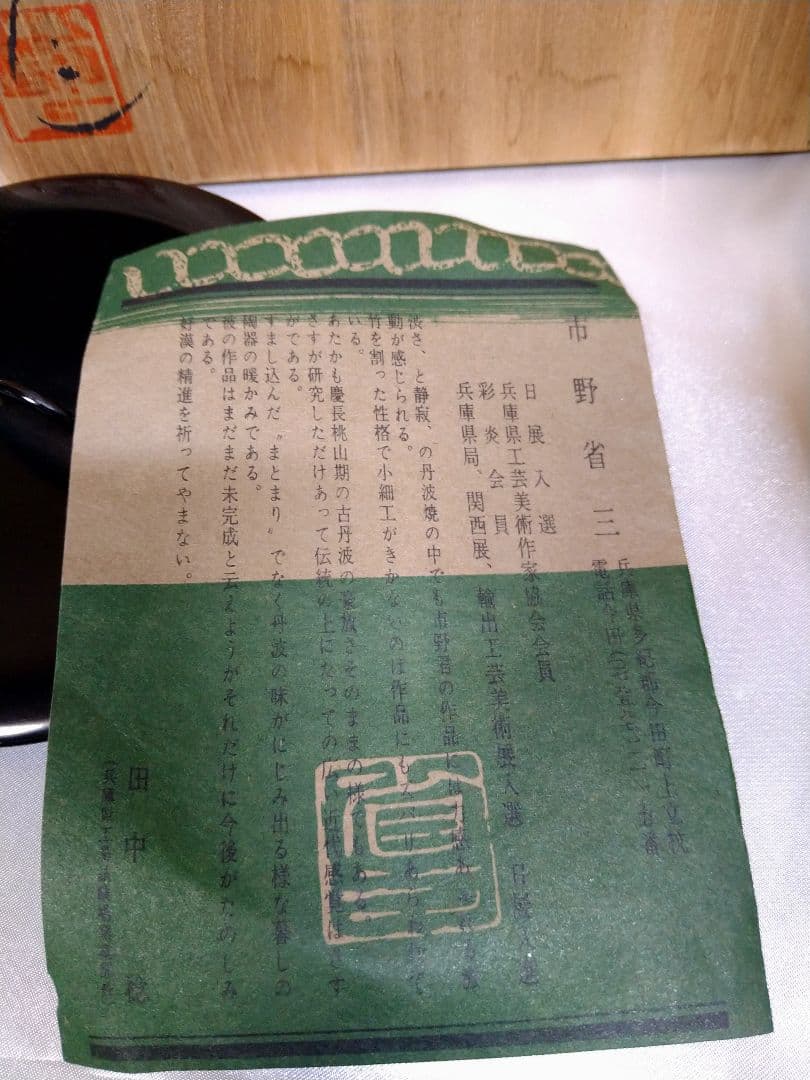 市野省三
兵庫県多紀郡今田町上立杭
電話今田
日展入選
兵庫県工芸美術作家協会会員
彩炎会員
兵庫県局、関西展、輸出工芸美術展入選 日展入選
渋さ、と静寂、の丹波焼の中でも市野君の作品には
動が感じられる。
竹を割った性格で小細工がきかないのは作品にもズバリあらわれて
いる。
あたかも慶長桃山期の古丹波の豪放さそのままの様でもある。
さすが研究しただけあって伝統の上にたっての 近代感覚は
がである。
すまし込んだ〝まとまり〟でなく丹波の味がにじみ出る様な暮しの
陶器の暖かみである。
彼の作品はまだまだ未完成と云えようがそれだけに今後がたのしみ
である。
好漢の精進を祈ってやまない。
田中稔
省三